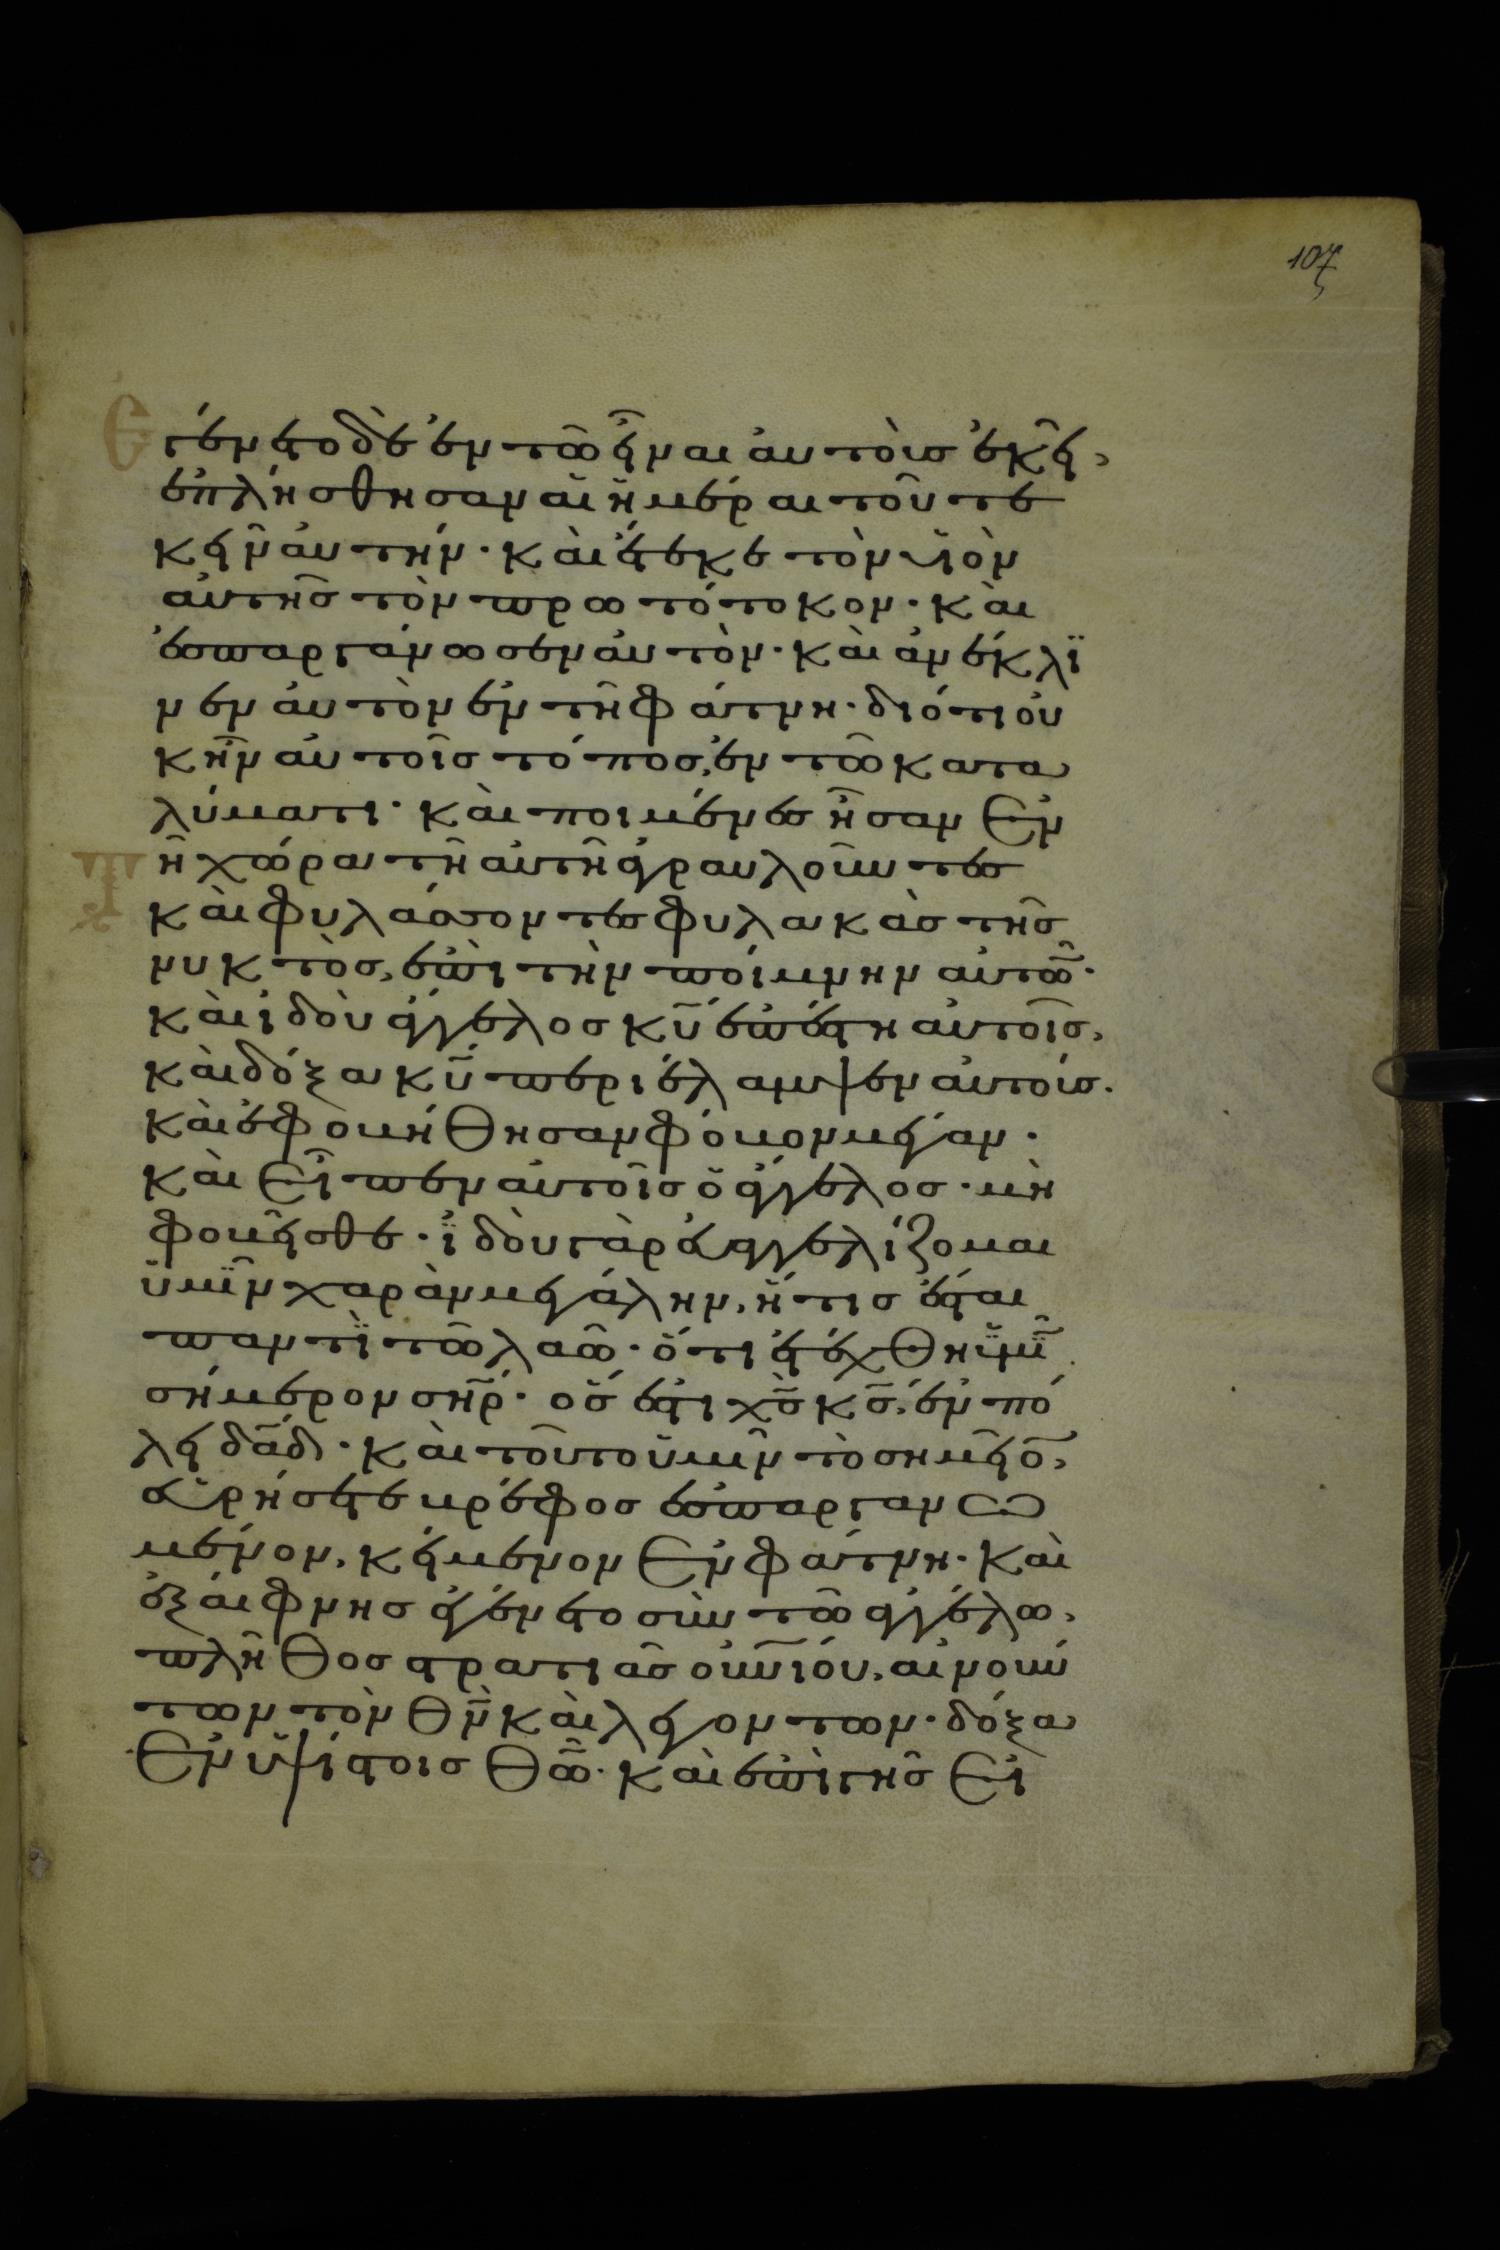 107
Ἐγένετο δὲ ἐν τῶ εἶναι ἀυτοὺσ ἐκεῖ,
ἐπλήσθησαν αἱ ἡμέραι τοῦ τε
κεῖν ἀυτήν· κὰι ἔτεκε τὸν υἱὸν
αὐτῆσ τὸν πρωτότοκον· κὰι
ἐσπαργάνωσεν ἀυτὸν· κὰι ἀνέκλϊ
νεν ἀυτὸν ἐν τῆ φάτνη· διότι οὐ
κ ἦν αὐτοῖσ τόποσ, ἐν τῶ κατα
λύματι· κὰι ποιμένεσ ἦσαν ἐν
τῆ χώρα τῆ αὐτῆ ἀγραυλοῦντεσ
κὰι φυλάσσοντεσ φυλακὰσ τῆσ
νυκτὸσ, ἐπὶ τὴν ποίμνην αὐτῶ̅·
κὰι ἰδὸυ ἄγγελοσ κ̅υ̅ ἐπέστη αὐτοῖσ,
κὰι δόξα κ̅υ̅ περιέλαμψεν αὐτούσ.
κὰι ἐφοβήθησαν φόβον μέγαν·
κὰι εἶπεν αὐτοῖσ ὁ ἄγγελοσ· μὴ
φοβεῖσθε· ἰ̈δὸυ γὰρ ἐυαγγελίζομαι
ὑμῖ̈ν χαρὰν μεγάλην, ἥτισ ἔσται
παντὶ̈ τῶ λαῶ· ὅτι ἐτέχθη ὑ̈μῖ̈
σήμερον σ̅η̅ρ̅· ὅσ ἐστι χ̅σ̅ κ̅σ̅, ἐν πό
λει δ̅α̅δ̅· κὰι τοῦτο ὑμῖν τὸ σημεῖο̅,
ἑυρήσετε βρέφοσ ἐσπαργανω
μένον, κείμενον ἐν φάτνη· κὰι
ἐξάιφνησ ἐγένετο σὺν τῶ ἀγγέλω,
πλῆθοσ στρατιᾶσ ο̅υ̅ν̅ίου, αἰνούν
των τὸν θ̅ν̅ κὰι λεγοντων· δόξα
ἐν ὑψίστοισ θ̅ῶ̅· κὰι ἐπὶ γῆσ εἰ